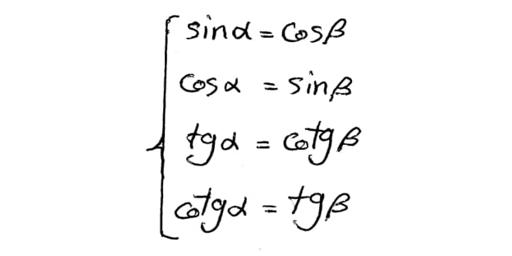 sinα = cosβ
cosα = sinβ
tgα = cotgβ
cotgα = tgβ